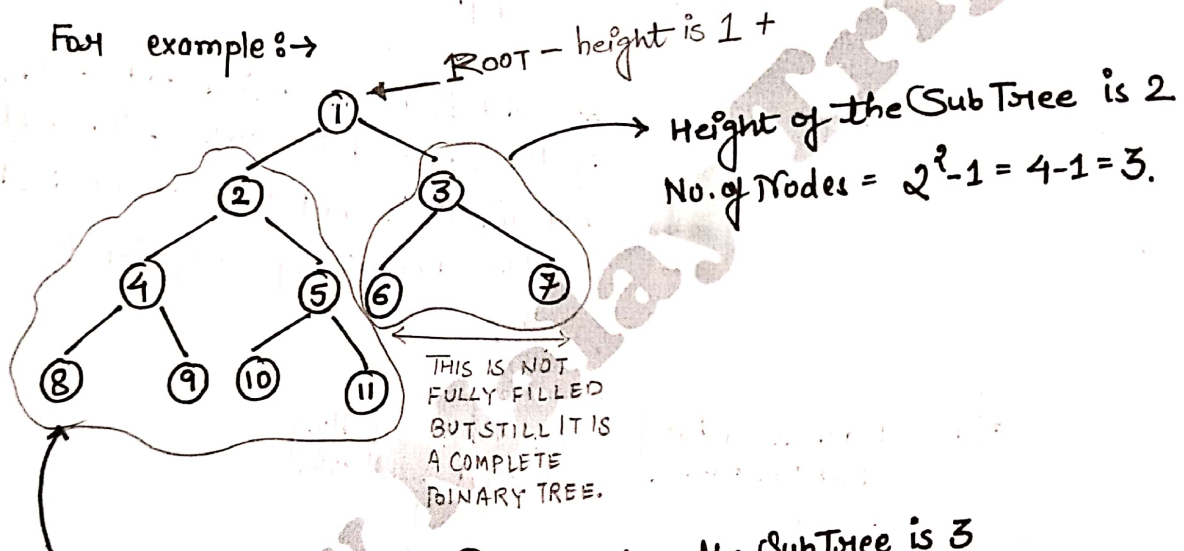 For example :→
ROOT - height is 1 +
1
Height of the SubTree is 2
No. of Nodes = 2²-1 = 4-1 = 3.
2
3
4
5
6
7
8
9
10
11
THIS IS NOT
FULLY FILLED
BUT STILL IT IS
A COMPLETE
BINARY TREE.
SubTree is 3